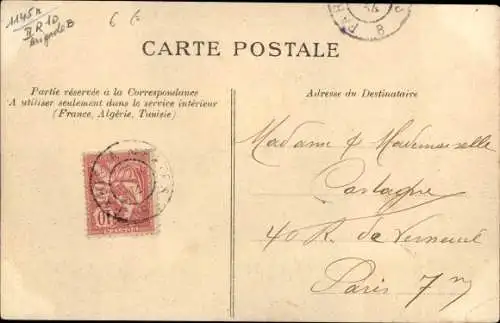 1145n
CARTE POSTALE
Partie réservée à la Correspondance
A utiliser seulement dans le service intérieur
(France, Algérie, Tunisie)
Adresse du Destinataire
10
Madame & Mademoiselle
Castagne
40 R. de Verneuil
Paris 7